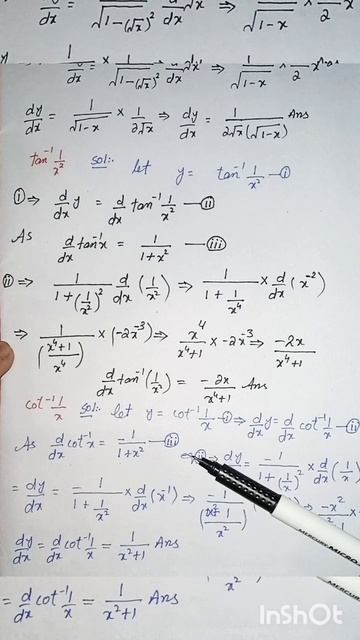 dy/dx = 1/√(1-(√x)²) d/dx √x ⇒ 1/√(1-x) × 1/2
dy/dx = 1/√(1-x) × 1/2√x ⇒ dy/dx = 1/2√x(√1-x) Ans
tan⁻¹ 1/x² Sol:- let y = tan⁻¹ 1/x² —(i)
(i) ⇒ d/dx y = d/dx tan⁻¹ 1/x² —(ii)
As d/dx tan⁻¹x = 1/1+x² —(iii)
(ii) ⇒ 1/1+(1/x²)² d/dx (1/x²) ⇒ 1/1+1/x⁴ × d/dx (x⁻²)
⇒ 1/(x⁴+1/x⁴) × (-2x⁻³) ⇒ x⁴/x⁴+1 × -2x⁻³ ⇒ -2x/x⁴+1
d/dx tan⁻¹(1/x²) = -2x/x⁴+1 Ans
cot⁻¹ 1/x Sol:- let y = cot⁻¹ 1/x —(i) ⇒ d/dx y = d/dx cot⁻¹ 1/x —(ii)
As d/dx cot⁻¹x = -1/1+x² —(iii) dy/dx = -1/1+(1/x)² × d/dx (1/x)
= dy/dx = -1/1+1/x² × d/dx (x⁻¹) ⇒
dy/dx = d/dx cot⁻¹ 1/x = 1/x²+1 Ans
x²
= d/dx cot⁻¹ 1/x = 1/x²+1 Ans
InShOt